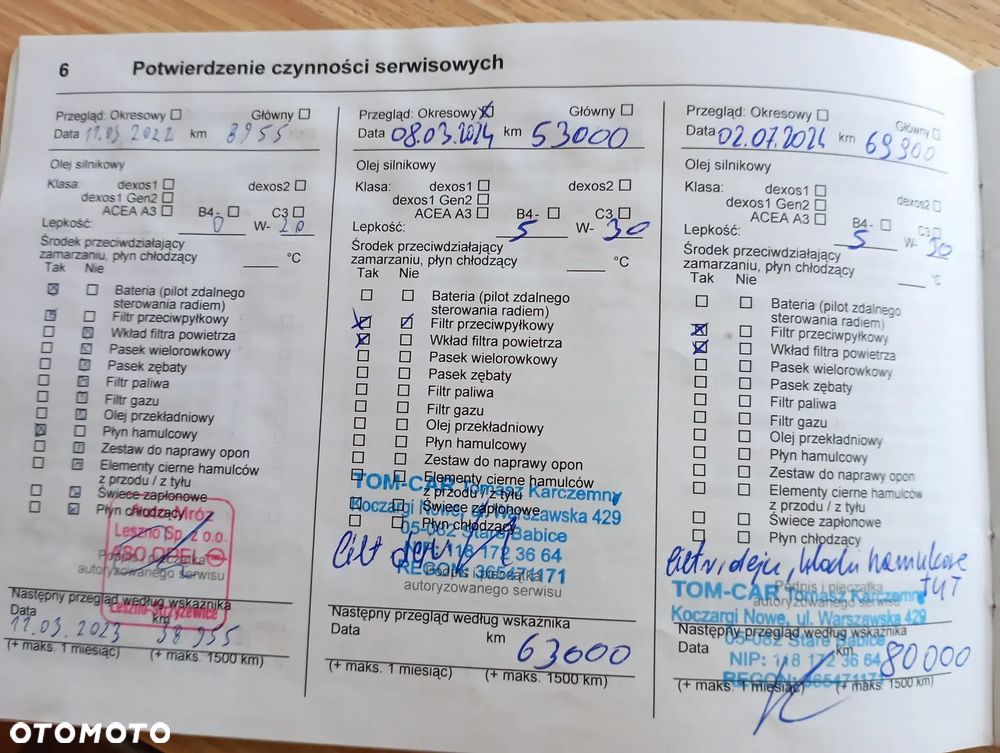 6 Potwierdzenie czynności serwisowych
Przegląd: Okresowy Główny
Data 11.03.2022 km 8955
Olej silnikowy
Klasa: dexos1 dexos2
dexos1 Gen2
ACEA A3 B4- C3
Lepkość: 0 W- 20
Środek przeciwdziałający
zamarzaniu, płyn chłodzący °C
Tak Nie
Bateria (pilot zdalnego
sterowania radiem)
Filtr przeciwpyłkowy
Wkład filtra powietrza
Pasek wielorowkowy
Pasek zębaty
Filtr paliwa
Filtr gazu
Olej przekładniowy
Płyn hamulcowy
Zestaw do naprawy opon
Elementy cierne hamulców
z przodu / z tyłu
Świece zapłonowe
Płyn chłodzący
Mróz
Leszno Sp. z o.o.
ASO OPEL
Podpis i pieczątka
autoryzowanego serwisu
Leszno-Strzyżewice
Następny przegląd według wskaźnika
Data km
11.03.2023 38955
(+ maks. 1 miesiąc) (+ maks. 1500 km)
Przegląd: Okresowy Główny
Data 08.03.2024 km 53000
Olej silnikowy
Klasa: dexos1 dexos2
dexos1 Gen2
ACEA A3 B4- C3
Lepkość: 5 W- 30
Środek przeciwdziałający
zamarzaniu, płyn chłodzący °C
Tak Nie
Bateria (pilot zdalnego
sterowania radiem)
Filtr przeciwpyłkowy
Wkład filtra powietrza
Pasek wielorowkowy
Pasek zębaty
Filtr paliwa
Filtr gazu
Olej przekładniowy
Płyn hamulcowy
Zestaw do naprawy opon
Elementy cierne hamulców
z przodu / z tyłu
Świece zapłonowe
Płyn chłodzący
TOM-CAR Tomasz Karczemny
Koczargi Nowe, ul. Warszawska 429
05-082 Stare Babice
NIP: 118 172 36 64
REGON: 365471171
Podpis i pieczątka
autoryzowanego serwisu
Następny przegląd według wskaźnika
Data km 63000
(+ maks. 1 miesiąc) (+ maks. 1500 km)
Przegląd: Okresowy Główny
Data 02.07.2024 km 69900
Olej silnikowy
Klasa: dexos1 dexos2
dexos1 Gen2
ACEA A3 B4- C3
Lepkość: 5 W- 30
Środek przeciwdziałający
zamarzaniu, płyn chłodzący °C
Tak Nie
Bateria (pilot zdalnego
sterowania radiem)
Filtr przeciwpyłkowy
Wkład filtra powietrza
Pasek wielorowkowy
Pasek zębaty
Filtr paliwa
Filtr gazu
Olej przekładniowy
Płyn hamulcowy
Zestaw do naprawy opon
Elementy cierne hamulców
z przodu / z tyłu
Świece zapłonowe
Płyn chłodzący
hamulcowe
TYŁ
Podpis i pieczątka
autoryzowanego serwisu
TOM-CAR Tomasz Karczemny
Koczargi Nowe, ul. Warszawska 429
05-082 Stare Babice
NIP: 118 172 36 64
REGON: 365471171
Następny przegląd według wskaźnika
Data km 80000
(+ maks. 1 miesiąc) (+ maks. 1500 km)
OTOMOTO